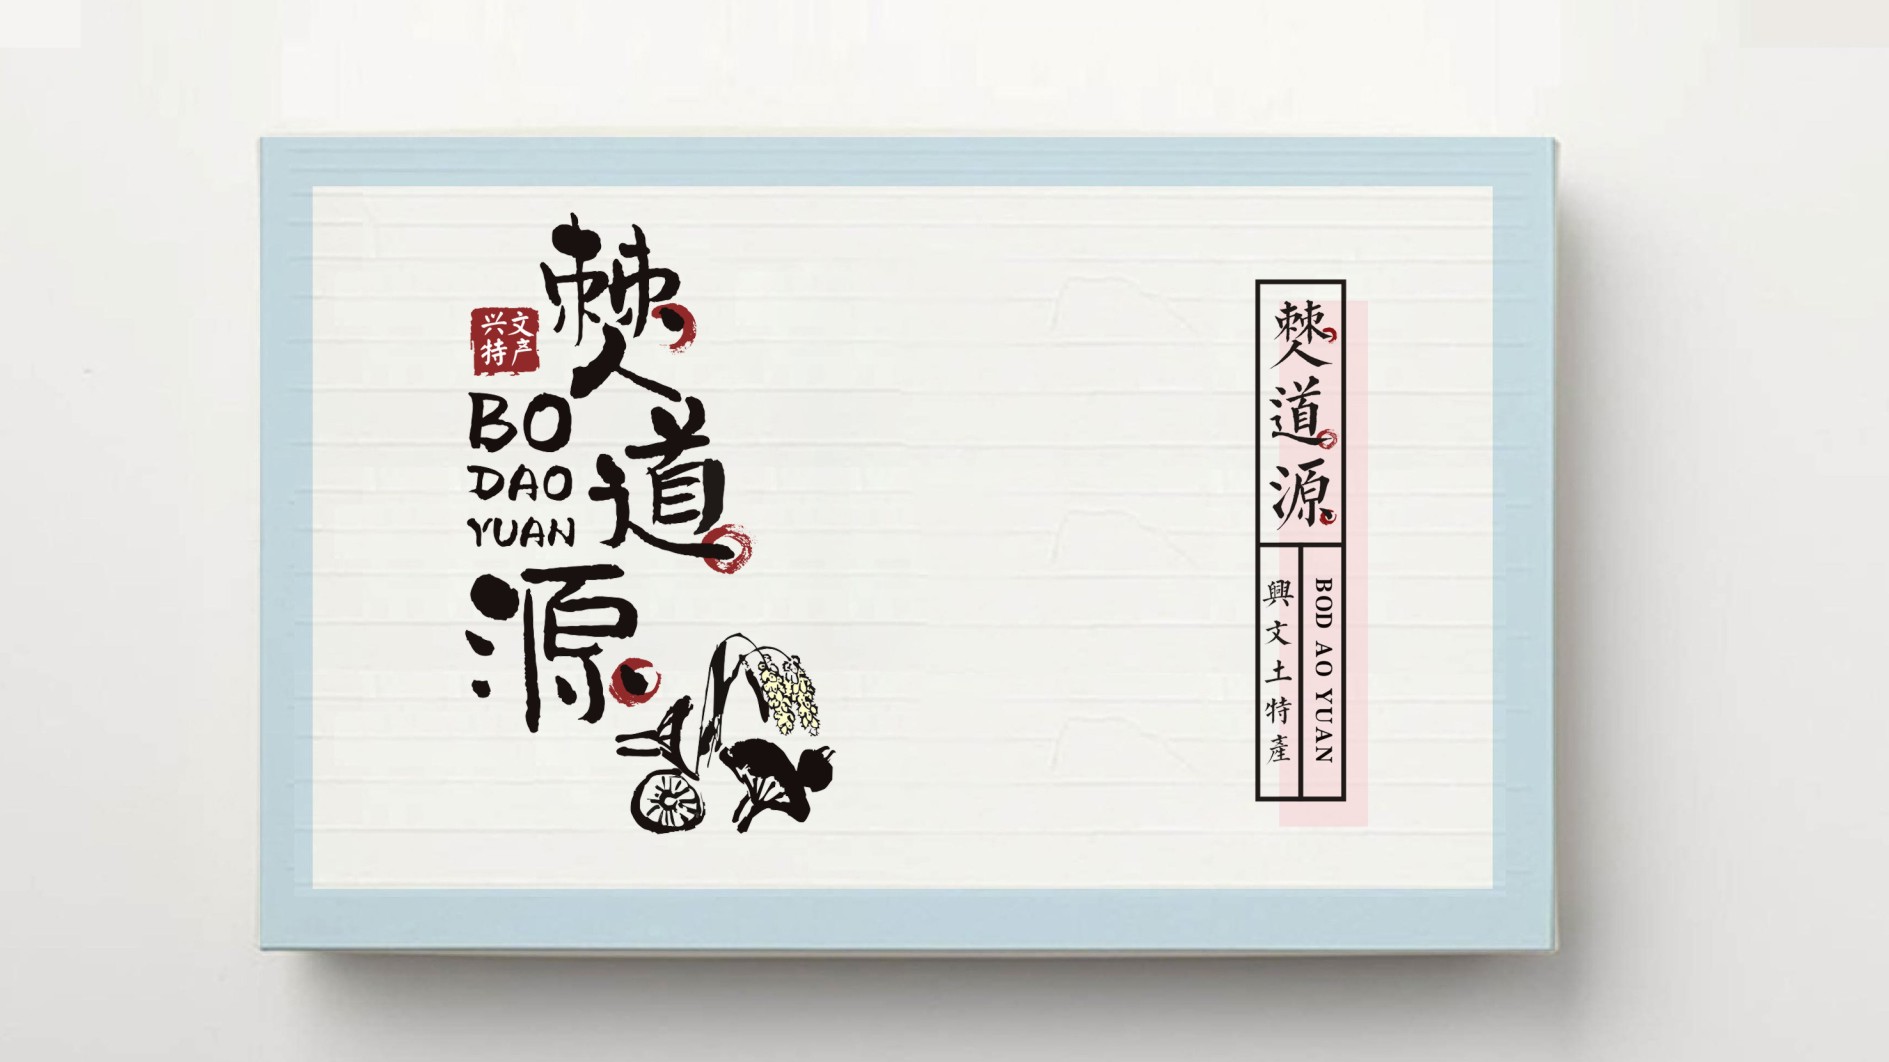 僰道源
兴文
特产
BO
DAO
YUAN
僰道源
興文土特產
BOD AO YUAN